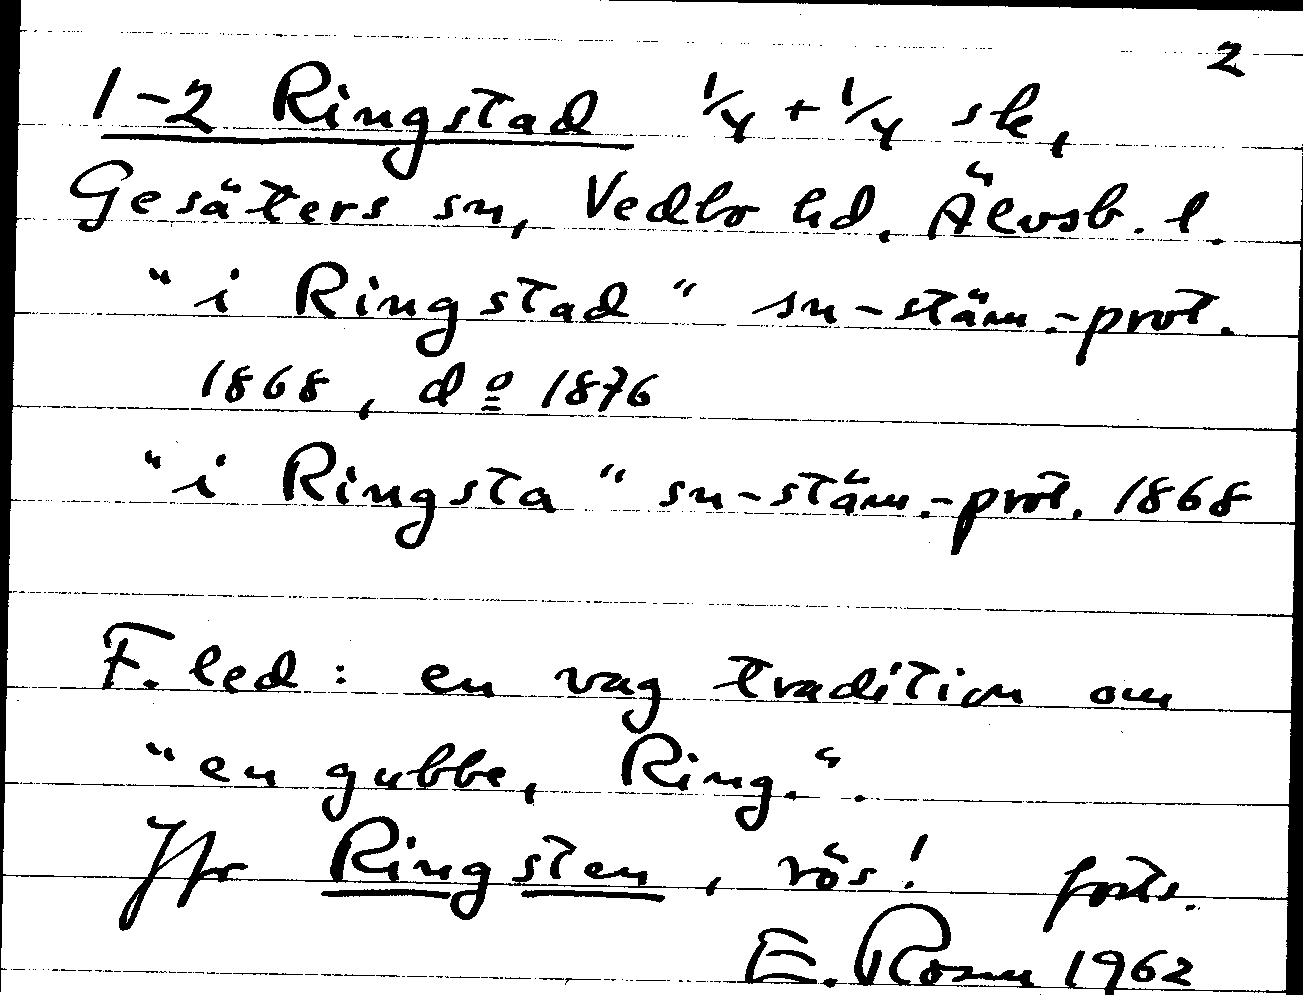 2
1-2 Ringstad 1/4 + 1/4 sk,
Gesäters sn, Vedbo hd. Älvsb. l.
"i Ringstad" sn-stäm.-prot.
1868, dº 1876
"i Ringsta" sn-stäm.-prot. 1868
F. led: en vag tradition om
"en gubbe, Ring.".
Jfr Ringsten, rös! forts.
E. Rosm 1962